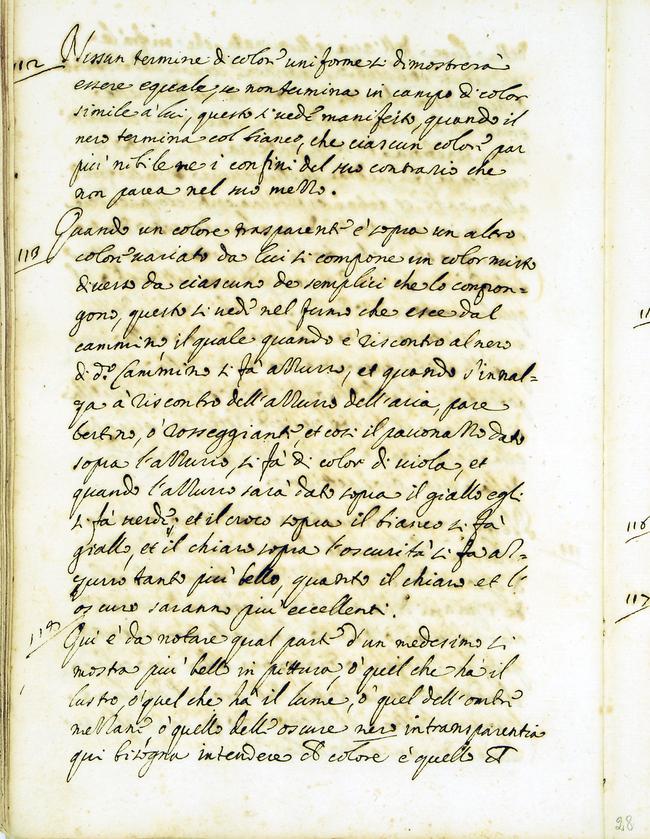 112 Nissun termine di colore uniforme si dimostrerà
essere equale, se non termina in campo di color
simile à lui, questo si vede manifesto, quando il
nero termina col bianco, che ciascun colore par
più nibile ne i confini del suo contrario che
non parea nel suo mezzo.
113 Quando un colore trasparente è sopra un altro
colore variato da lui si compone un color misto
diverso da ciascuno de semplici che lo compon=
gono, questo si vede nel fumo che esce dal
cammino il quale quando è riscontro al nero
di d.º Cammino si fà azzurro, et quando s'innal=
za à riscontro dell'azzurro dell'aria, pare
bertino, ò rosseggiante, et così il pauonazzo dato
sopra l'azzurro, si fà di color di uiola, et
quando l'azzurro sarà dato sopra il giallo egli
si fà uerde; et il croco sopra il bianco si fà
giallo, et il chiaro sopra l'oscurità si fa az=
zurro tanto più bello, quanto il chiaro et l'
oscuro saranno più eccellenti.
114 Qui è da notare qual parte d'un medesimo si
mostra più bello in pittura, ò quel che hà il
lustro, ò quel che hà il lume, ò quel dell'ombre
mezzane, ò quello dell'oscure nero in transparentia
qui bisogna intendere che colore è quello che
116
117
28